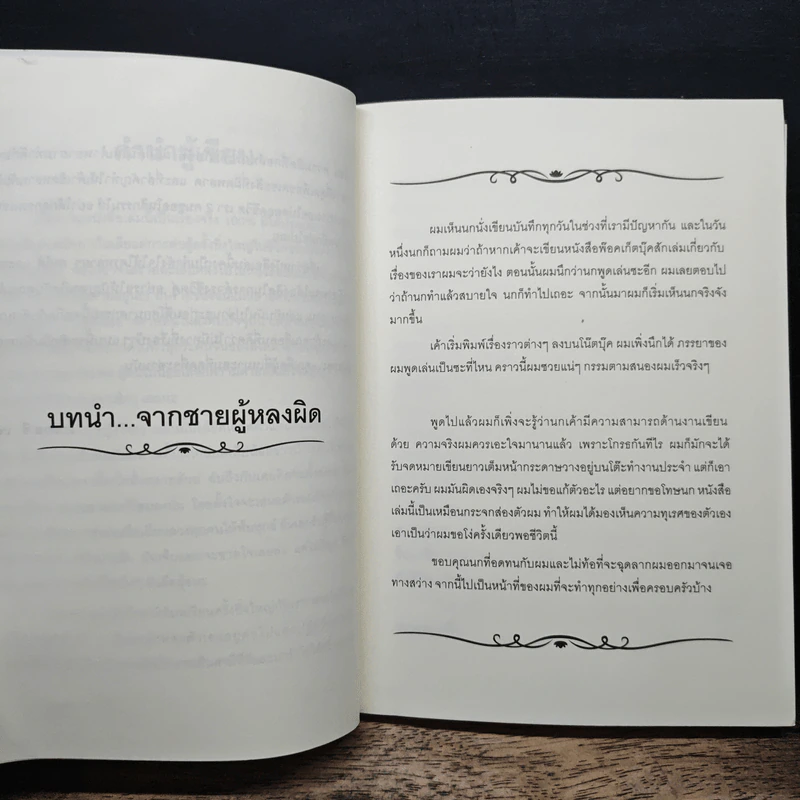 บทนำ...จากชายผู้หลงผิด
ผมเห็นนกนั่งเขียนบันทึกทุกวันในช่วงที่เรามีปัญหากัน และในวัน
หนึ่งนกก็ถามผมว่าถ้าหากเค้าจะเขียนหนังสือพ็อคเก็ตบุ๊คสักเล่มเกี่ยวกับ
เรื่องของเราผมจะว่ายังไง ตอนนั้นผมนึกว่านกพูดเล่นซะอีก ผมเลยตอบไป
ว่าถ้านกทำแล้วสบายใจ นกก็ทำไปเถอะ จากนั้นมาผมก็เริ่มเห็นนกจริงจัง
มากขึ้น
เค้าเริ่มพิมพ์เรื่องราวต่างๆ ลงบนโน๊ตบุ๊ค ผมเพิ่งนึกได้ ภรรยาของ
ผมพูดเล่นเป็นซะที่ไหน คราวนี้ผมซวยแน่ๆ กรรมตามสนองผมเร็วจริงๆ
พูดไปแล้วผมก็เพิ่งจะรู้ว่านกเค้ามีความสามารถด้านงานเขียน
ด้วย ความจริงผมควรเอะใจมานานแล้ว เพราะโกรธกันทีไร ผมก็มักจะได้
รับจดหมายเขียนยาวเต็มหน้ากระดาษวางอยู่บนโต๊ะทำงานประจำ แต่ก็เอา
เถอะครับ ผมมันผิดเองจริงๆ ผมไม่ขอแก้ตัวอะไร แต่อยากขอโทษนก หนังสือ
เล่มนี้เป็นเหมือนกระจกส่องตัวผม ทำให้ผมได้มองเห็นความทุเรศของตัวเอง
เอาเป็นว่าผมขอโง่ครั้งเดียวพอชีวิตนี้
ขอบคุณนกที่อดทนกับผมและไม่ท้อที่จะฉุดลากผมออกมาจนเจอ
ทางสว่าง จากนี้ไปเป็นหน้าที่ของผมที่จะทำทุกอย่างเพื่อครอบครัวบ้าง